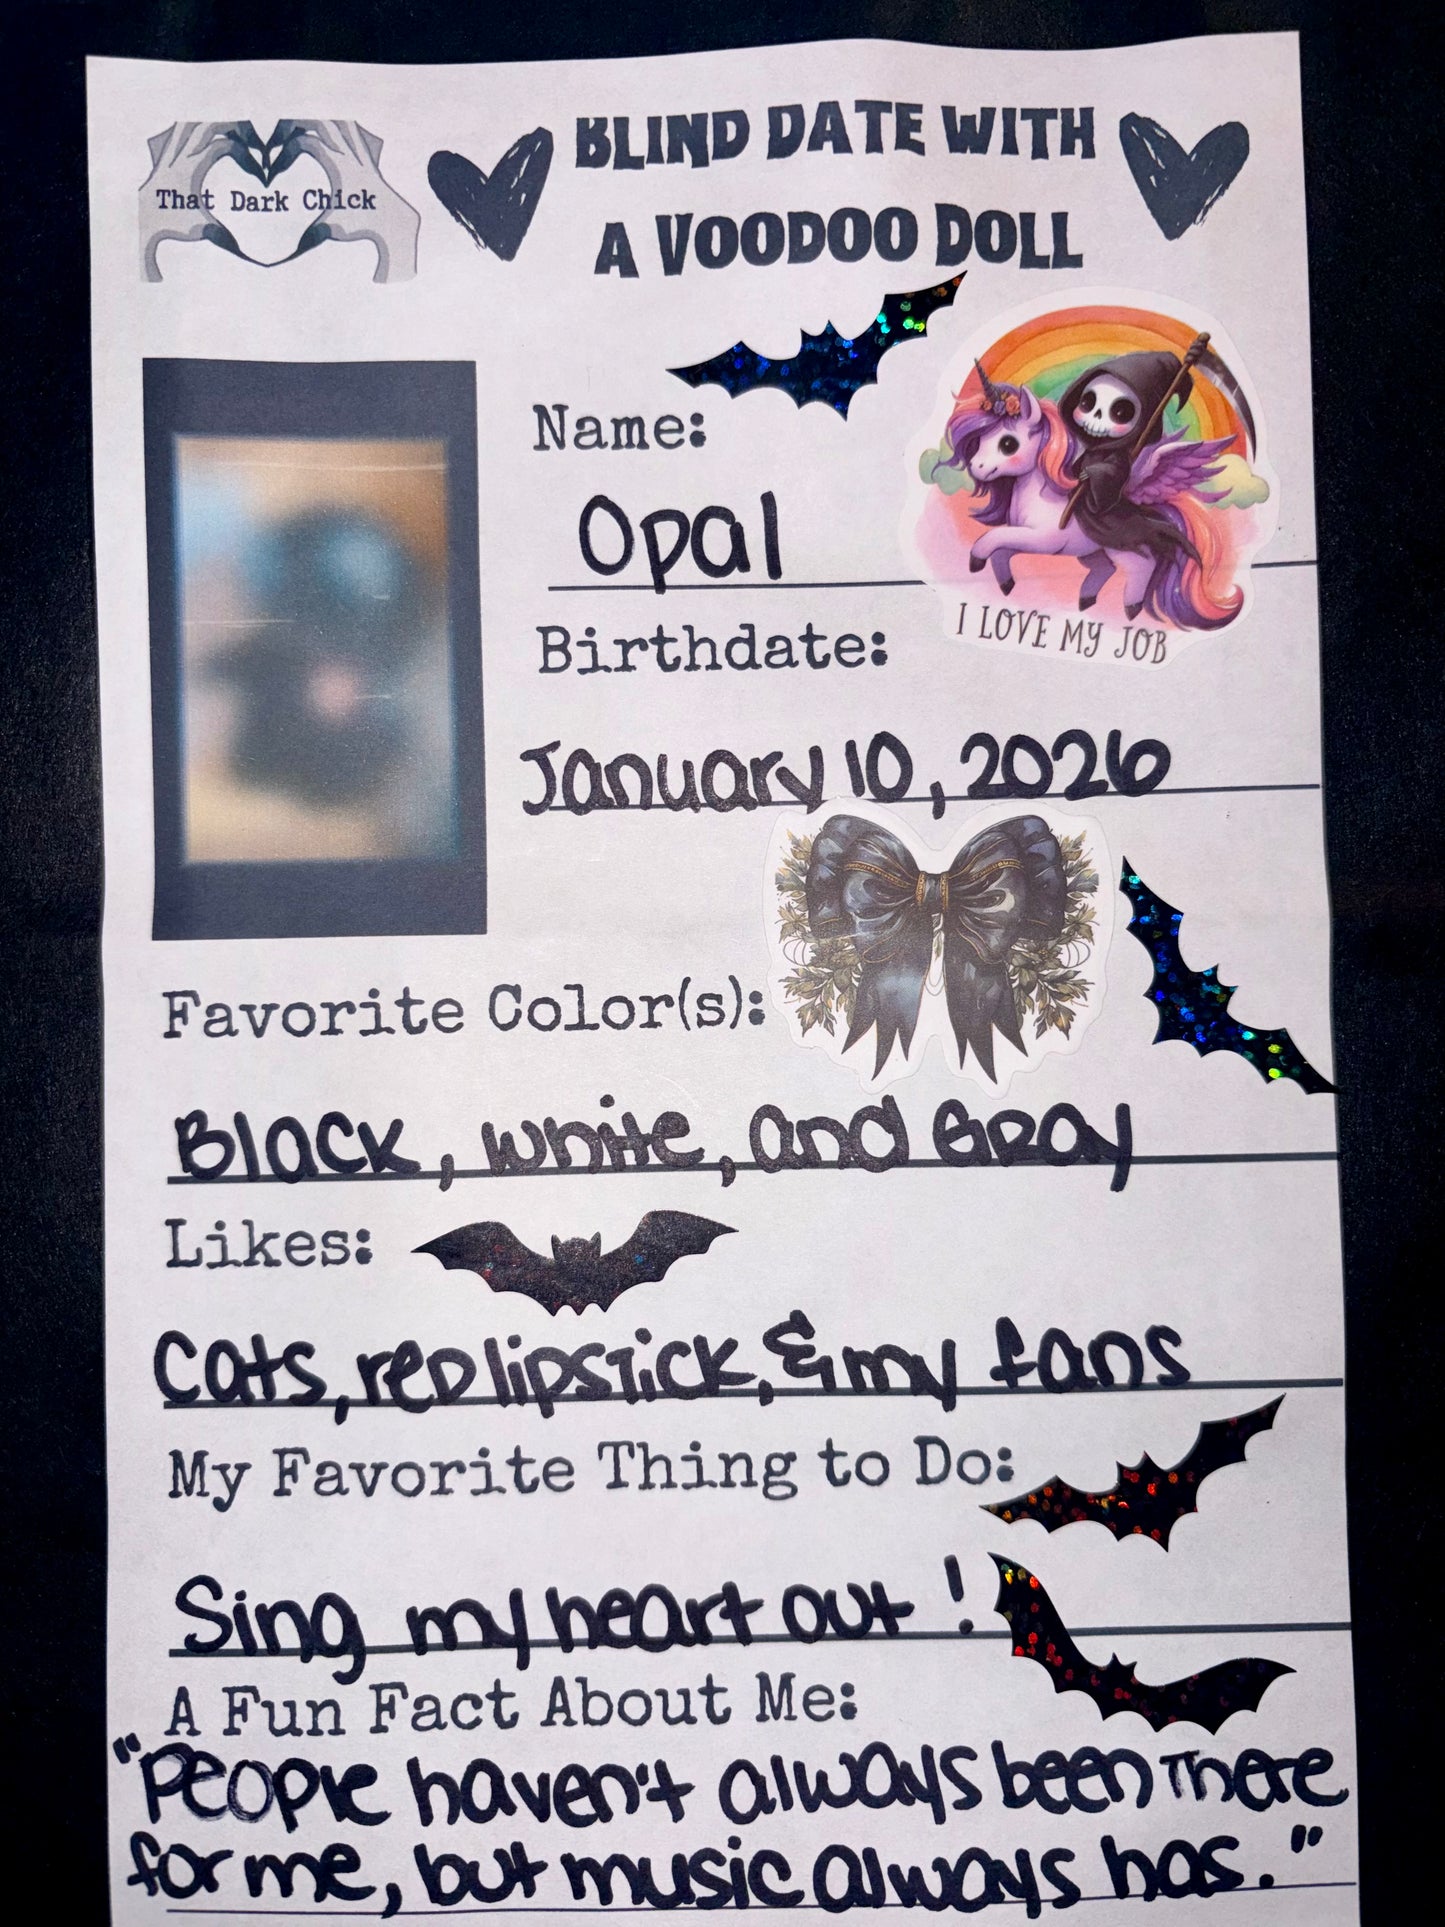 That Dark Chick
BLIND DATE WITH
A VOODOO DOLL
Name:
Opal
I LOVE MY JOB
Birthdate:
January 10, 2026
Favorite Color(s):
Black, white, and Gray
Likes:
Cats, red lipstick, & my fans
My Favorite Thing to Do:
Sing my heart out !
A Fun Fact About Me:
"People haven't always been There
for me, but music always has."